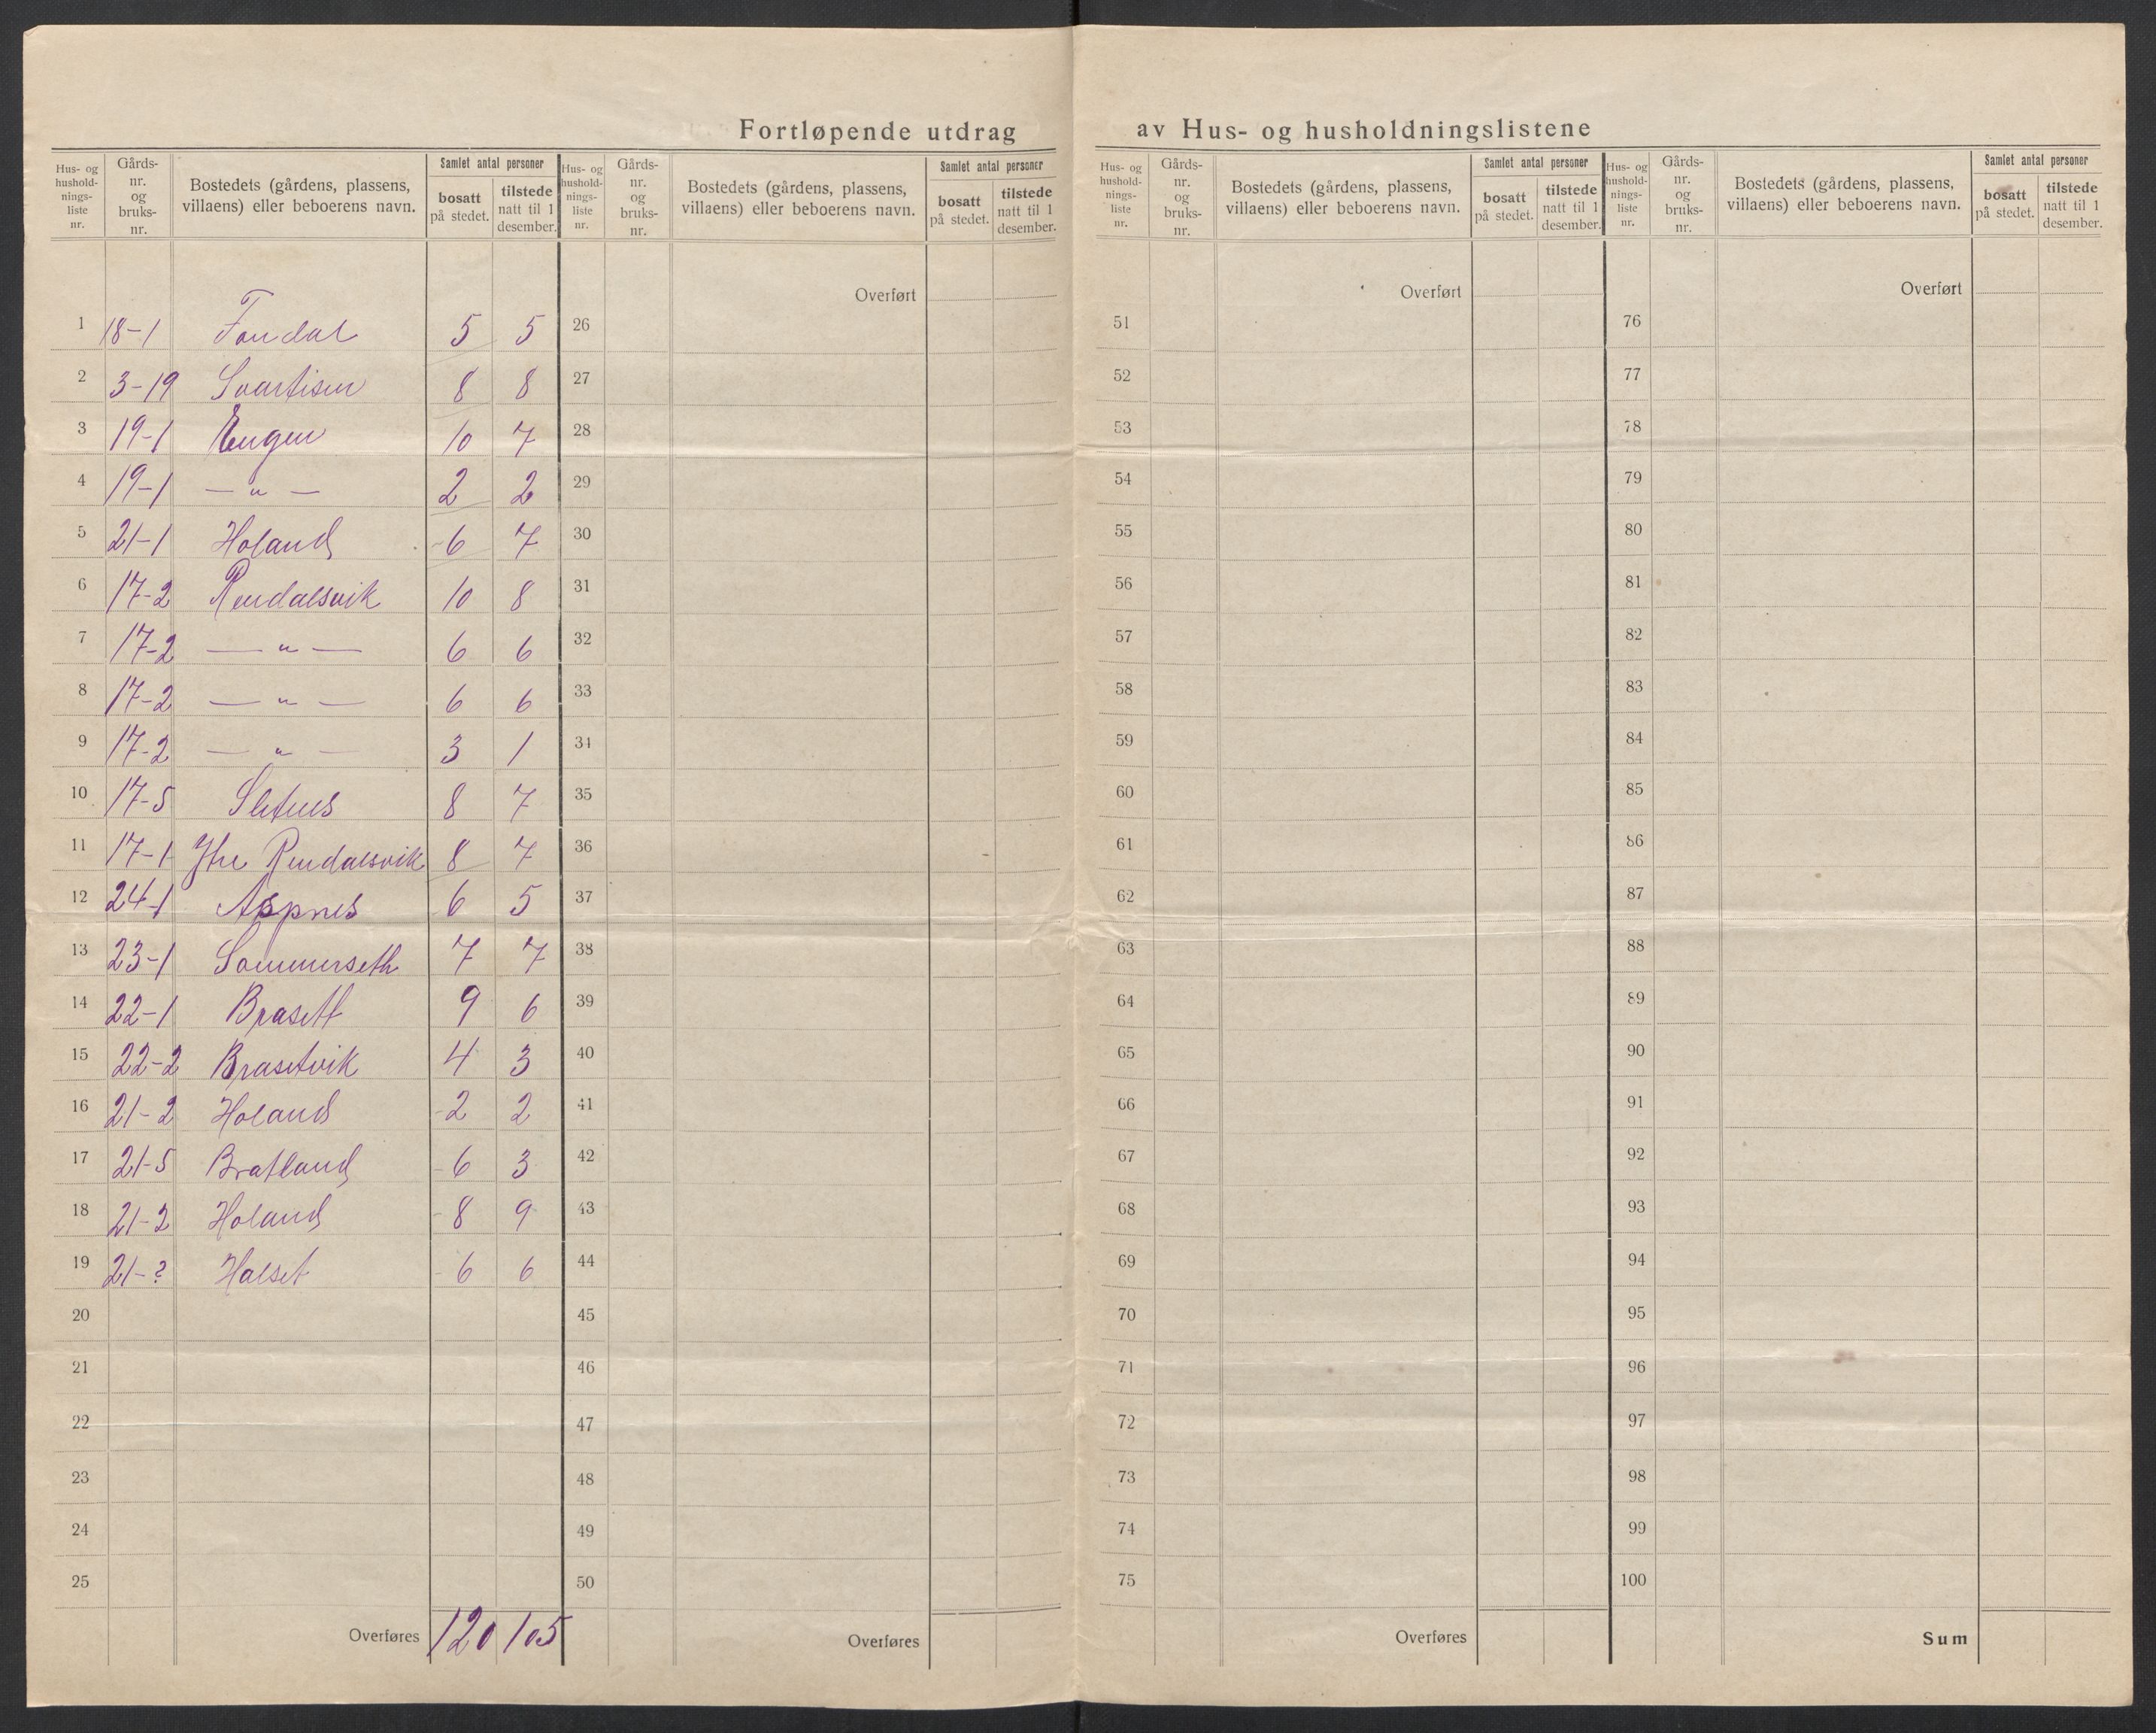 Fortløpende utdrag av Hus- og husholdningslistene
Hus- og husholdnings-liste nr. | Gårds-nr. og bruks-nr. | Bostedets (gårdens, plassens, villaens) eller beboerens navn. | Samlet antal personer | bosatt på stedet. | tilstede natt til 1 desember.
1 18-1 Fondal 5 5
2 3-19 Svartisen 8 8
3 19-1 Engen 10 7
4 19-1 — " — 2 2
5 21-1 Holand 6 7
6 17-2 Rendalsvik 10 8
7 17-2 — " — 6 6
8 17-2 — " — 6 6
9 17-2 — " — 3 1
10 17-5 Sletnes 8 7
11 17-1 Ytre Rendalsvik 8 7
12 24-1 Aspnes 6 5
13 23-1 Sommerseth 7 7
14 22-1 Brasett 9 6
15 22-2 Brasetvik 4 3
16 21-2 Holand 2 2
17 21-5 Bratland 6 3
18 21-2 Holand 8 9
19 21-? Halset 6 6
20
21
22
23
24
25
Overføres 120 105
Hus- og husholdnings-liste nr. | Gårds-nr. og bruks-nr. | Bostedets (gårdens, plassens, villaens) eller beboerens navn. | Samlet antal personer | bosatt på stedet. | tilstede natt til 1 desember.
Overført
26
27
28
29
30
31
32
33
34
35
36
37
38
39
40
41
42
43
44
45
46
47
48
49
50
Overføres
Hus- og husholdnings-liste nr. | Gårds-nr. og bruks-nr. | Bostedets (gårdens, plassens, villaens) eller beboerens navn. | Samlet antal personer | bosatt på stedet. | tilstede natt til 1 desember.
Overført
51
52
53
54
55
56
57
58
59
60
61
62
63
64
65
66
67
68
69
70
71
72
73
74
75
Overføres
Hus- og husholdnings-liste nr. | Gårds-nr. og bruks-nr. | Bostedets (gårdens, plassens, villaens) eller beboerens navn. | Samlet antal personer | bosatt på stedet. | tilstede natt til 1 desember.
Overført
76
77
78
79
80
81
82
83
84
85
86
87
88
89
90
91
92
93
94
95
96
97
98
99
100
Sum